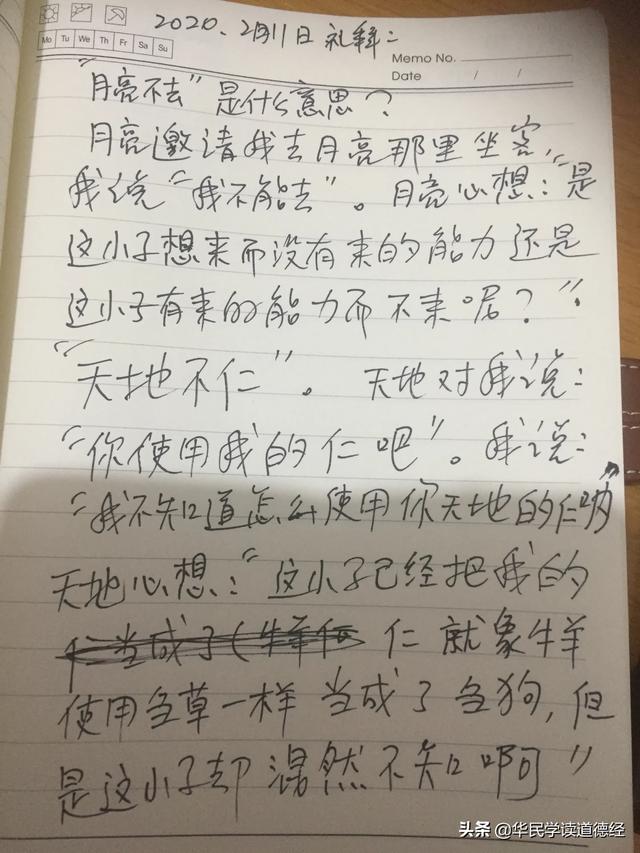 2020.2月11日 礼拜二
Mo Tu We Th Fr Sa Su
Memo No.
Date / /
"月亮不去"是什么意思？
月亮邀请我去月亮那里坐客，
我说"我不能去"。月亮心想："是
这小子想来而没有来的能力还是
这小子有来的能力而不来呢？"
"天地不仁"。天地对我说：
"你使用我的仁吧"。我说：
"我不知道怎么使用你天地的仁哟"
天地心想："这小子已经把我的
仁就象牛羊
使用刍草一样当成了刍狗，但
是这小子却混然不知啊"
头条 @华民学读道德经